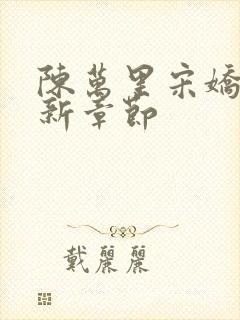 陳萬里宋嬌
新章節
戴麗麗